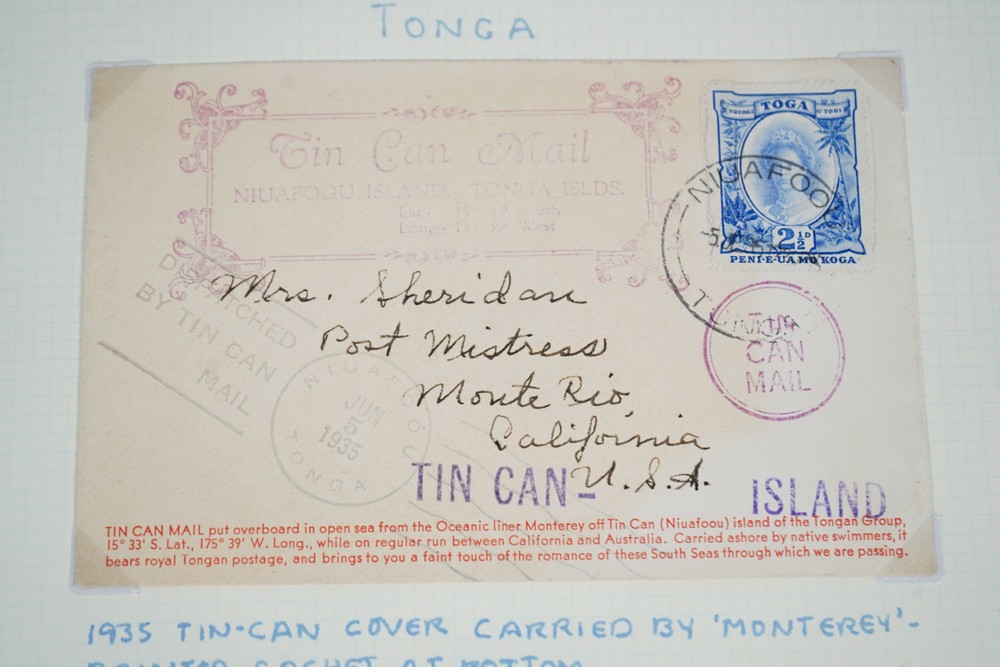 TONGA
Tin Can Mail
NIUAFOOU ISLAND, TONGA ISLDS.
TOTOGI
TOGA
2½D
PENI-E-UA MO KOGA
NIUAFOOU
TIN
CAN
MAIL
DISPATCHED
BY TIN CAN
MAIL
NIUAFOOU
JUN
5
1935
TONGA
Mrs. Sheridan
Post Mistress
Monte Rio,
California
U.S.A.
TIN CAN- ISLAND
TIN CAN MAIL put overboard in open sea from the Oceanic liner Monterey off Tin Can (Niuafoou) island of the Tongan Group,
15° 33' S. Lat., 175° 39' W. Long., while on regular run between California and Australia. Carried ashore by native swimmers, it
bears royal Tongan postage, and brings to you a faint touch of the romance of these South Seas through which we are passing.
1935 TIN-CAN COVER CARRIED BY 'MONTEREY'-
PRINTED CACHET AT BOTTOM